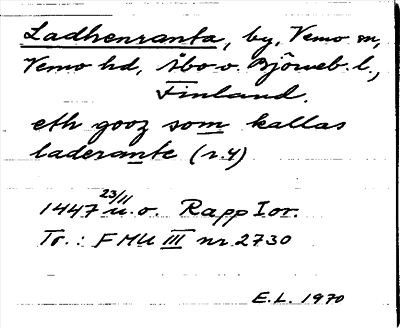 Ladhenranta, by, Vemo sn,
Vemo hd, Åbo o. Björneb. l.,
Finland.
eth gooz som kallas
laderante (r.4)
1447 23/11 u.o. Rapp I or.
Tr.: FMU III nr 2730
E.L. 1970